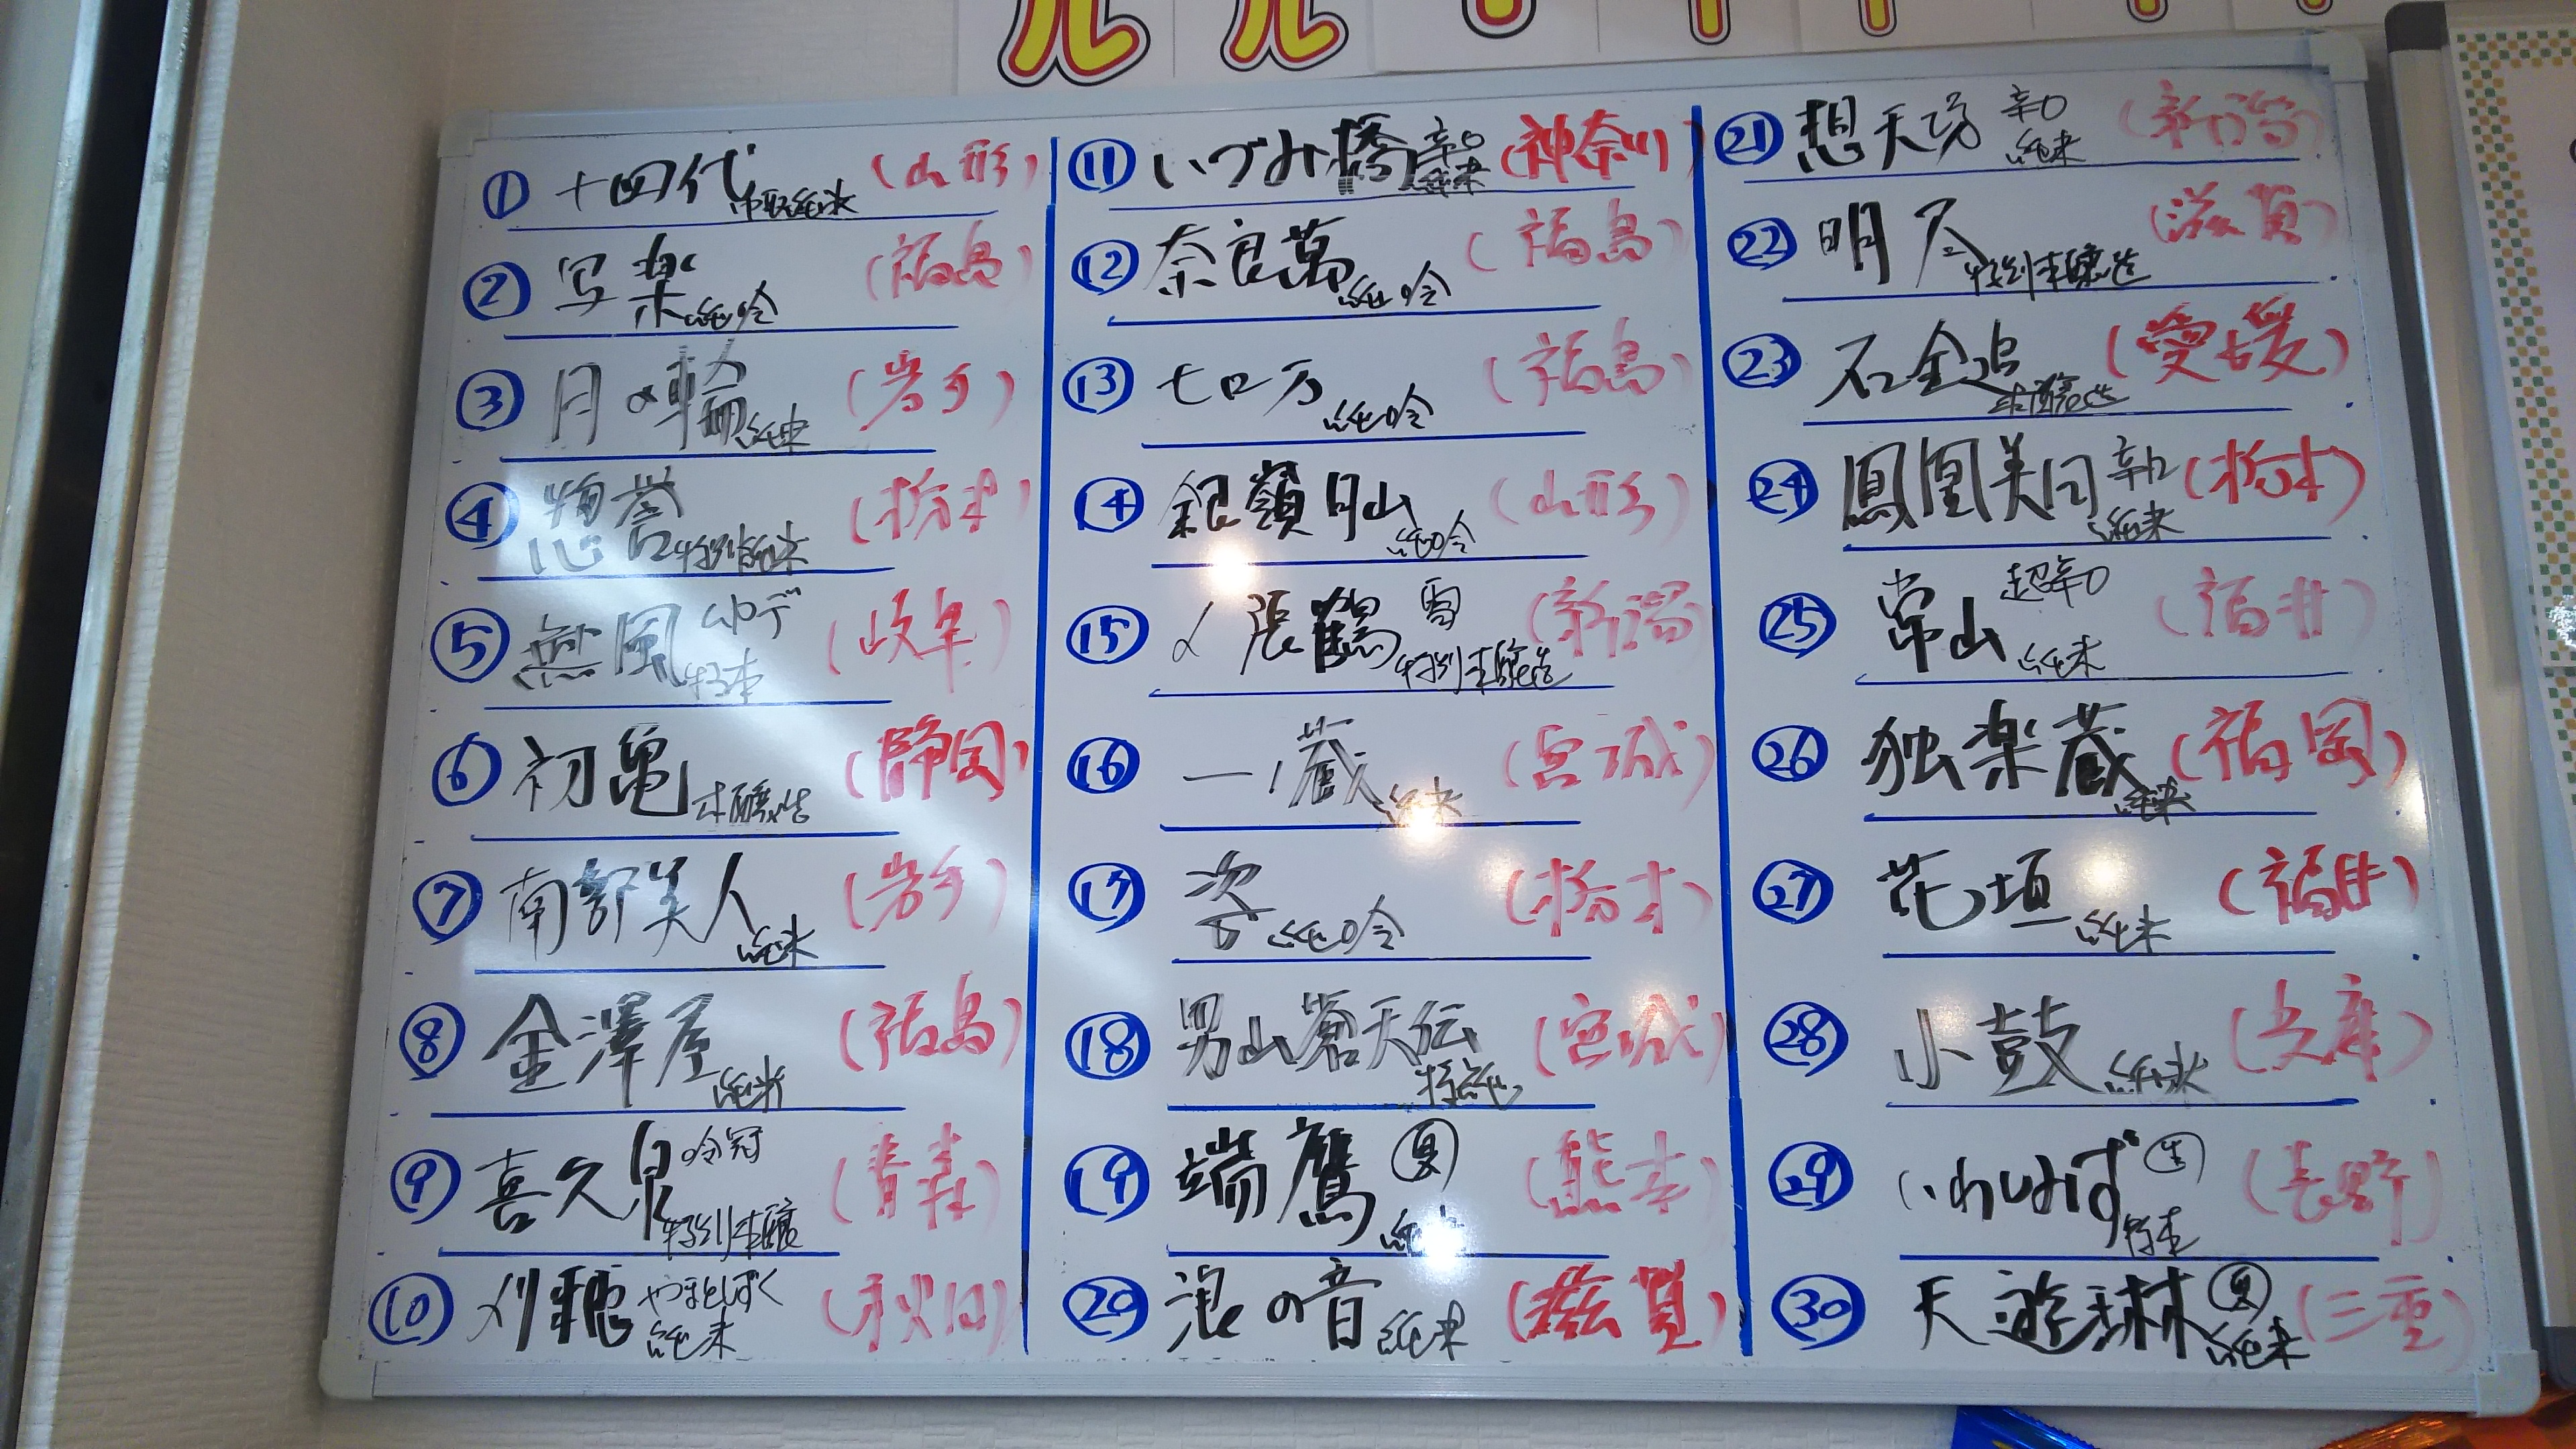 ① 十四代 本醸純米 (山形)
② 写楽 純吟 (福島)
③ 月の輪 純米 (岩手)
④ 惣誉 特別純米 (栃木)
⑤ 無風 ムカデ 特本 (岐阜)
⑥ 初亀 本醸造 (静岡)
⑦ 南部美人 純米 (岩手)
⑧ 金澤屋 純米 (福島)
⑨ 喜久泉 吟冠 特別本醸 (青森)
⑩ 刈穂 やまとしずく 純米 (秋田)
⑪ いづみ橋 辛口 純米 (神奈川)
⑫ 奈良萬 純吟 (福島)
⑬ 七ロ万 純吟 (福島)
⑭ 銀嶺月山 純吟 (山形)
⑮ 〆張鶴 雪 特別本醸造 (新潟)
⑯ 一ノ蔵 純米 (宮城)
⑰ 姿 純吟 (栃木)
⑱ 男山蒼天伝 特純 (宮城)
⑲ 端鷹 夏 純米 (熊本)
⑳ 浪の音 純米 (滋賀)
㉑ 想天坊 辛口 純米 (新潟)
㉒ 明尽 特別本醸造 (滋賀)
㉓ 石全追 本醸造 (愛媛)
㉔ 鳳凰美田 辛口 純米 (栃木)
㉕ 常山 超辛口 純米 (福井)
㉖ 独楽蔵 純米 (福岡)
㉗ 花垣 純米 (福井)
㉘ 小鼓 純米 (兵庫)
㉙ いわしみず 生 特本 (長野)
㉚ 天遊琳 夏 純米 (三重)